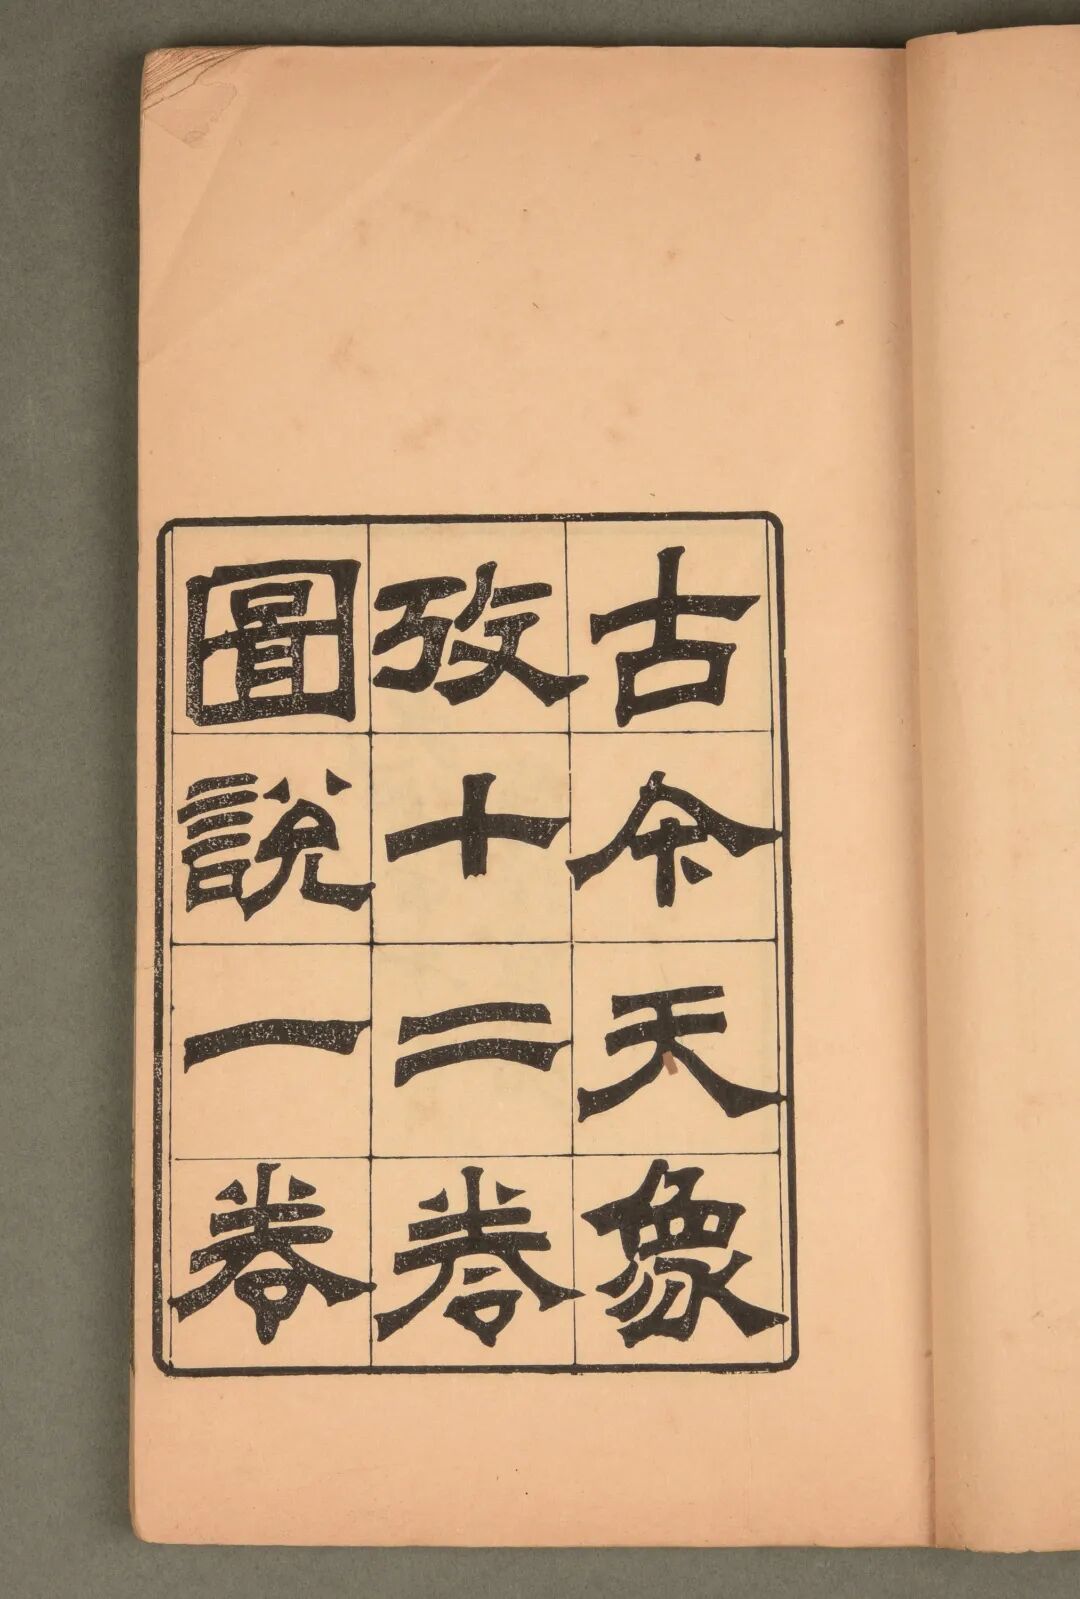 古今天象
攷十二卷
圖說一卷